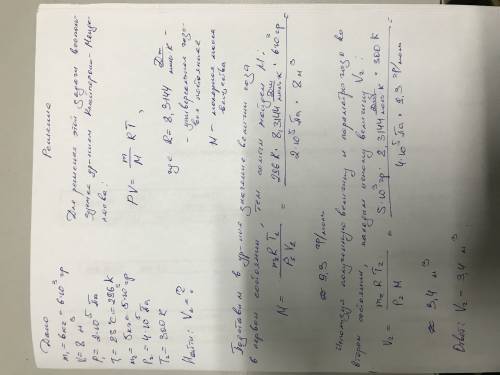 Дано
m₁ = 6кг = 6·10³ гр
V = 8 м³
P₁ = 2·10⁵ Па
t = 23°C = 296 К
m₂ = 5кг = 5·10³ гр
P₂ = 4·10⁵ Па
T₂ = 300 К
Найти: V₂ = ?
Решение
Для решения этой задачи воспользуемся ур-нием Клайперона-Менделеева:
PV = m/M RT,
где R = 8,3144 Дж/моль·К -
- универсальная газовая постоянная
M - молярная масса вещества
Подставим в ур-ние значение величин газа
в первом состоянии, тем самым найдем M:
M = m₁RT₂/P₂V₂ = 296 К · 8,3144 Дж/моль·К · 6·10³ гр / 2·10⁵ Па · 8 м³
≈ 9,3 гр/моль
Используя полученную величину и параметры газа во
втором состоянии, находим искомую величину V₂:
V₂ = m₂RT₂/P₂M = 5·10³ гр · 8,3144 Дж/моль·К · 300 К / 4·10⁵ Па · 9,3 гр/моль =
≈ 3,4 м³
Ответ: V₂ = 3,4 м³